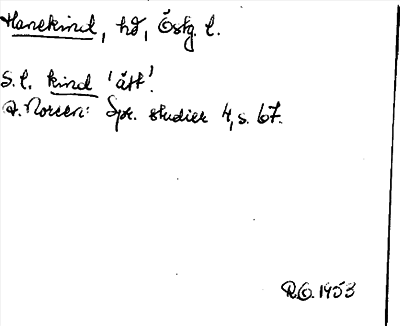 Hanekind, hd, Östg. l.
S. l. kind 'ätt'.
A. Noreen: Spr. studier 4, s. 67.
R.O. 1953